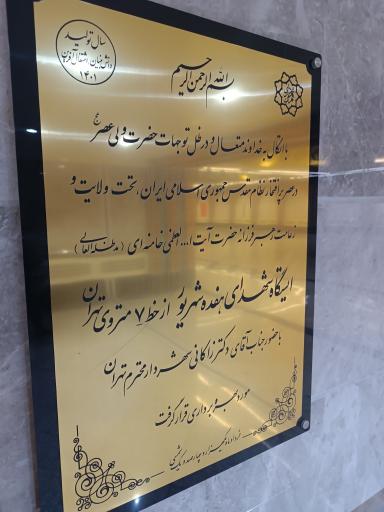 سال تولید
دانش بنیان، اشتغال آفرین
۱۴۰۱
بسم الله الرحمن الرحیم
با اتکال به خداوند متعال و در ظل توجهات حضرت ولی عصر (عج)
در عصر پر افتخار نظام مقدس جمهوری اسلامی ایران، تحت ولایت و
زعامت رهبر فرزانه حضرت آیت ا... العظمی خامنه ای (مدظله العالی)
ایستگاه شهدای هفده شهریور از خط ۷ متروی تهران
با حضور جناب آقای دکتر زاکانی شهردار محترم تهران
مورد بهره برداری قرار گرفت
خرداد ماه یکهزار و چهارصد و یک شمسی